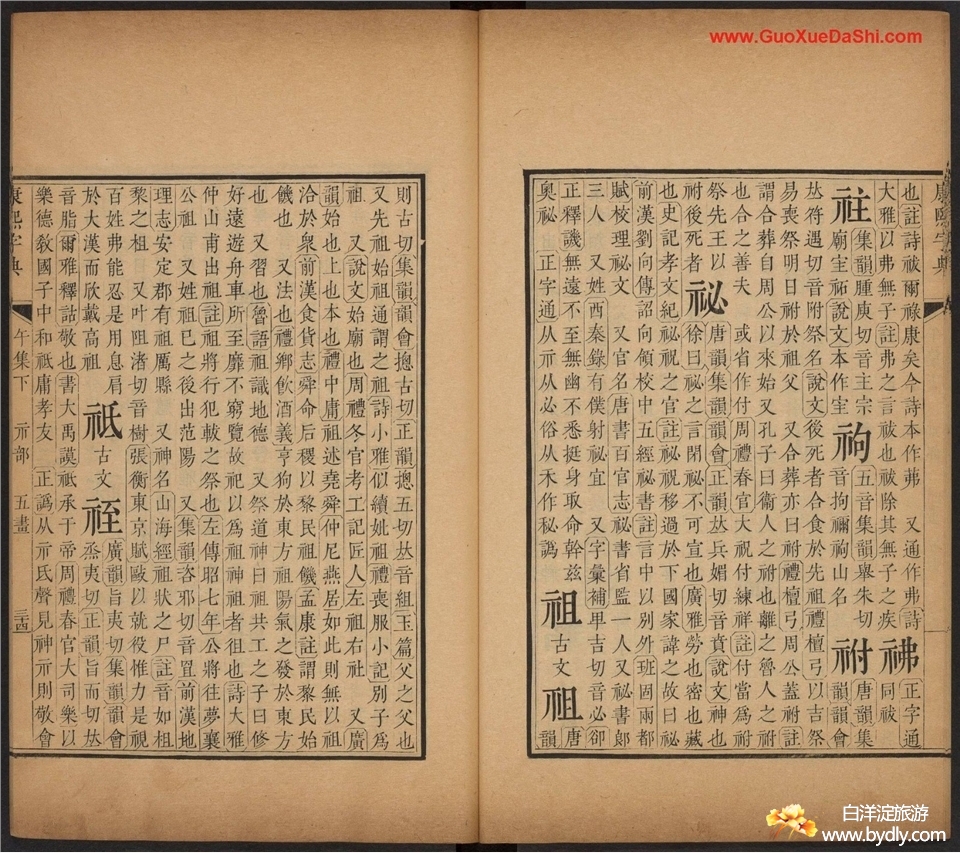 康熙字典
也註詩祓爾祿康矣今詩本作茀 又通作弗詩
大雅以弗無子註弗之言祓也祓除其無子之疾
正字通
同祓
祩集韻腫庾切音主宗
廟宔祏說文本作宔
五音集韻舉朱切
音拘禰山名
祔唐韻集
韻韻會
𠀤符遇切音附祭名說文後死者合食於先祖禮檀弓以吉祭
易喪祭明日祔於祖父 又合葬亦曰祔禮檀弓周公蓋祔註
謂合葬自周公以來始又孔子曰衞人之祔也離之魯人之祔
也合之善夫 或省作付周禮春官大祝付練祥註付當爲祔
祭先王以
祔後死者
祕唐韻集韻韻會正韻𠀤兵媚切音賁說文神也
徐曰祕之言閉祕不可宣也廣雅勞也密也藏
也史記孝文紀祕祝之官註祕祝移過於下國家諱之故曰祕
前漢劉向傳詔向領校中五經祕書註言中以別外班固兩都
賦校理祕文 又官名唐書百官志祕書省監一人又祕書郞
三人 又姓西秦錄有僕射祕宜 又字彙補畢吉切音必卻
正釋譏無遠不至無幽不悉挺身取命幹兹
奧祕 正字通从示从必俗从禾作秘譌
祖古文祖唐
韻
則古切集韻韻會摠古切正韻摠五切𠀤音組玉篇父之父也
又先祖始祖通謂之祖詩小雅似續妣祖禮喪服小記別子爲
祖 又說文始廟也周禮冬官考工記匠人左祖右社 又廣
韻始也上也本也禮中庸祖述堯舜仲尼燕居如此則無以祖
洽於衆前漢食貨志舜命后稷以黎民祖饑孟康註謂黎民始
饑也 又法也禮鄉飮酒義亨狗於東方祖陽氣之發於東方
也 又習也魯語祖識地德 又祭道神曰祖共工之子曰修
好遠遊舟車所至靡不窮覽故祀以爲祖神祖者徂也詩大雅
仲山甫出祖註祖將行犯軷之祭也左傳昭七年公將往夢襄
公祖 又姓祖巳之後出范陽 又集韻咨邪切音罝前漢地
理志安定郡有祖厲縣 又神名山海經祖狀之尸註音如柤
黎之柤 又叶阻渚切音樹張衡東京賦毆以就役惟力是視
百姓弗能忍是用息肩
於大漢而欣戴高祖
祗古文𥙆廣韻旨夷切集韻韻會
烝夷切正韻旨而切𠀤
音脂爾雅釋詁敬也書大禹謨祗承于帝周禮春官大司樂以
樂德敎國子中和祗庸孝友 正譌从示氐聲見神示則敬會
康熙字典
午集下 示部 五畫 三十四
www.GuoXueDaShi.com
白洋淀旅游
www.bydly.com